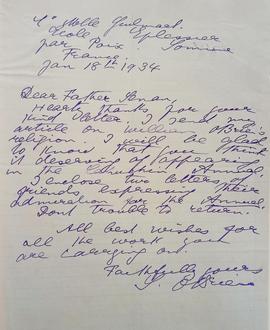 par Poix Somme
France
Jan 18th 1934
Dear Father Senan,
Hearty thanks for your
kind letter. I send my
article on William O'Brien's
religion. I will be glad
to know that you think
it deserving of appearing
in the Capuchin Annual.
I enclose two letters of
friends expressing their
admiration for the Annual.
Dont trouble to return.
All best wishes for
all the work you
are carrying on.
Faithfully yours
S. O'Brien